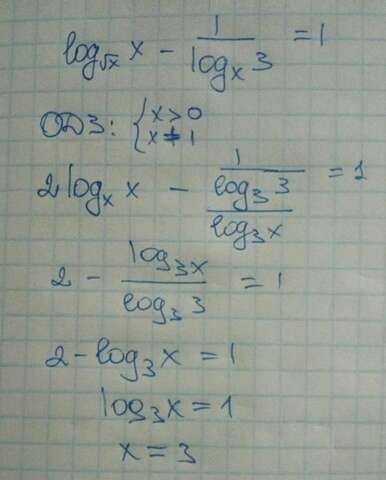 log_{√x} x − 1/(log_x 3) = 1
ОДЗ: { x > 0
x ≠ 1
2 log_x x − 1/((log_3 3)/(log_3 x)) = 1
2 − (log_3 x)/(log_3 3) = 1
2 − log_3 x = 1
log_3 x = 1
x = 3